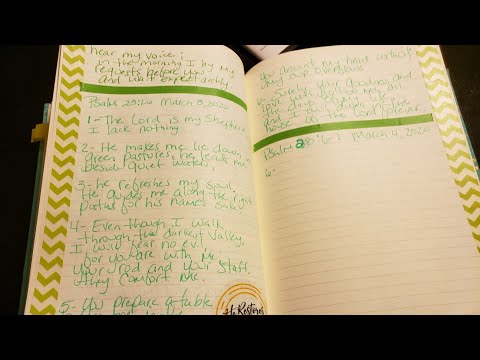 hear my voice;
in the morning I lay my
requests before you
and wait expectantly.
Psalm 23:1-6 March 3, 2020
1- The Lord is my Shepherd
I lack nothing
2- He makes me lie down in
green pastures, he leads me
beside quiet waters,
3- he refreshes my soul.
He guides me along the right
paths for his name's sake.
4- Even though I walk
through the darkest valley,
I will fear no evil,
for you are with me
your rod and your staff,
they comfort me.
5- You prepare a table
He Restores
You anoint my head with oil
my cup overflows
6- Surely your goodness and
love will follow me all
the days of my life
and I will dwell in the
house of the Lord forever.
Psalm March 4, 2020
6-